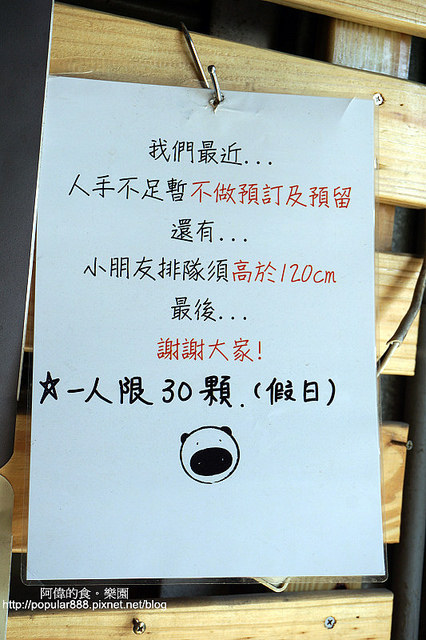 我們最近...
人手不足暫不做預訂及預留
還有...
小朋友排隊須高於120cm
最後...
謝謝大家!
☆一人限30顆.(假日)
阿偉的食。樂園
http://popular888.pixnet.net/blog